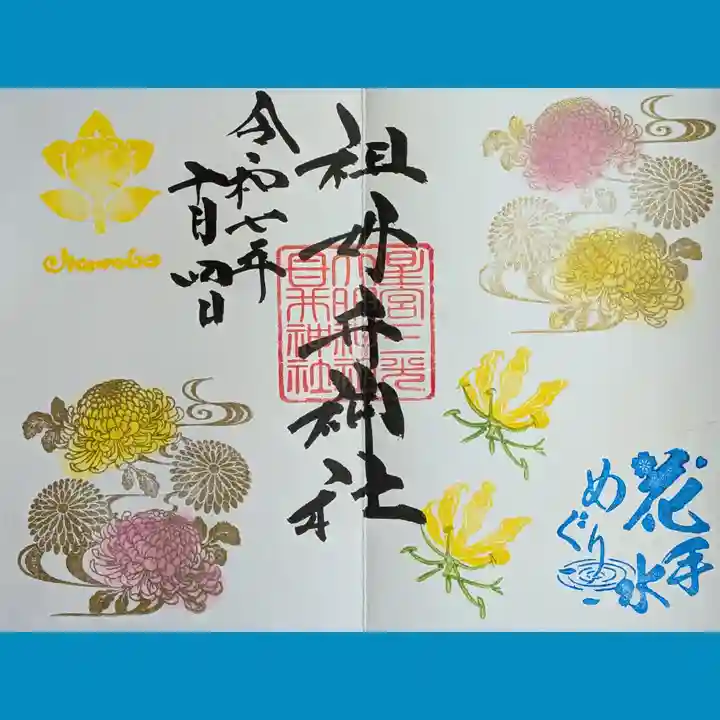 祖母井神社
令和七年
十月四日
星宮三光
大明神祖
母井神社
花手水
めぐり